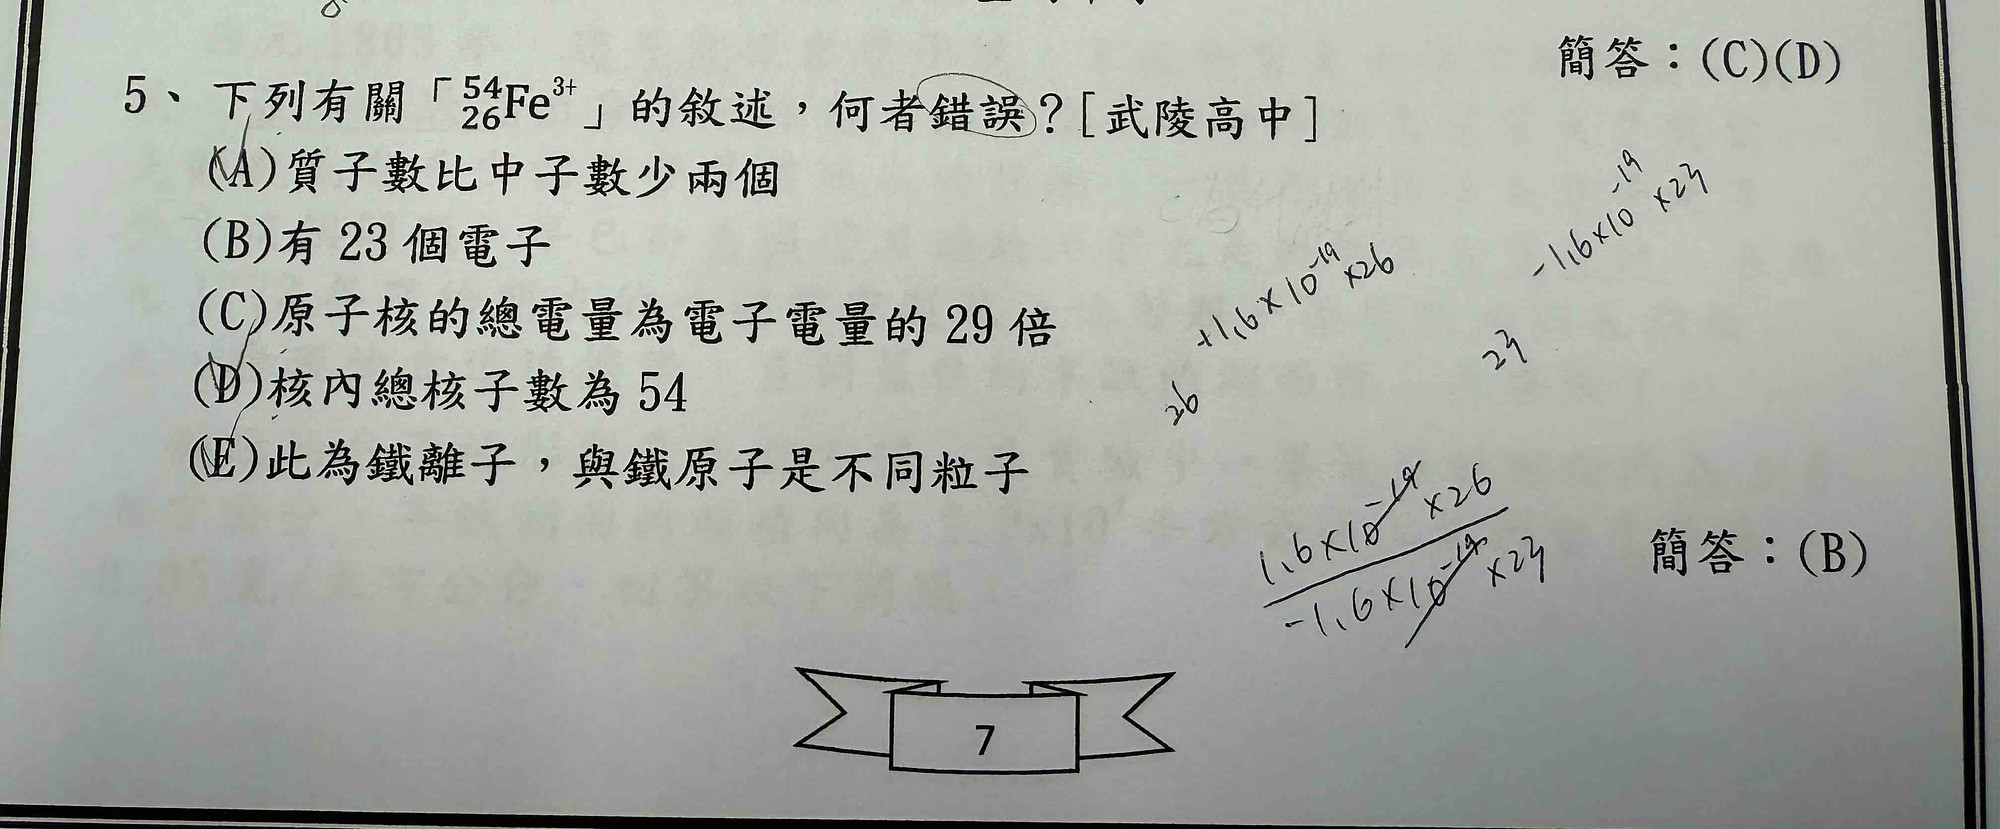 簡答：(C)(D)
5、下列有關「⁵⁴₂₆Fe³⁺」的敘述，何者錯誤？[武陵高中]
(A)質子數比中子數少兩個
(B)有 23 個電子
(C)原子核的總電量為電子電量的 29 倍
(D)核內總核子數為 54
(E)此為鐵離子，與鐵原子是不同粒子
+1.6×10⁻¹⁹×26
26
-1.6×10⁻¹⁹×23
23
1.6×10⁻¹⁹×26
-1.6×10⁻¹⁹×23
簡答：(B)
7